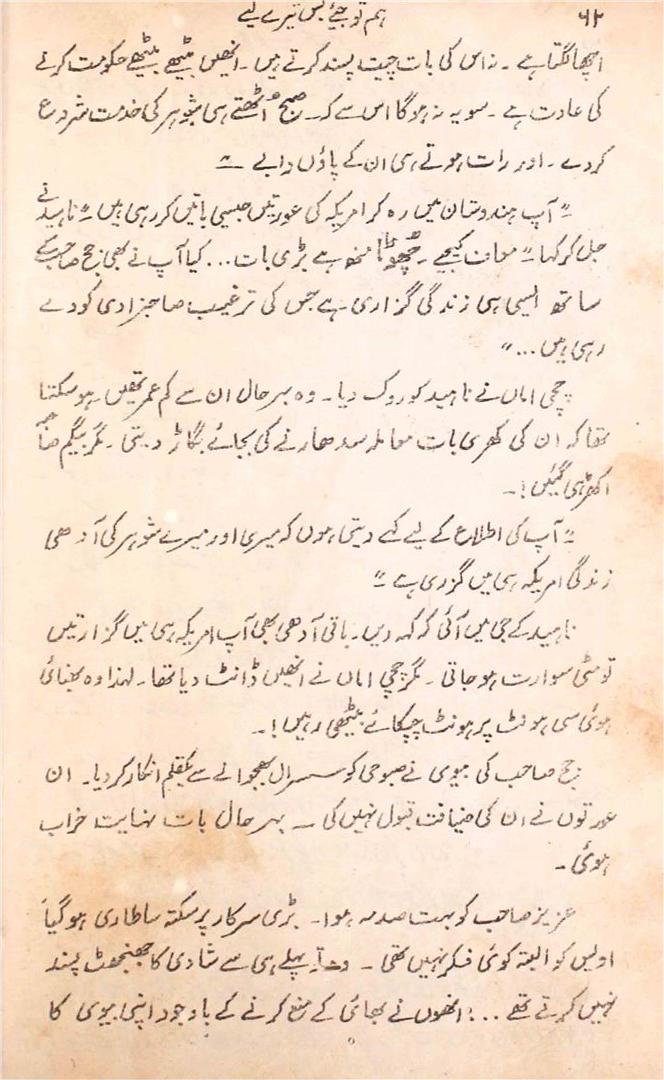 ۶۲ ہم تو جئے بس تیرے لیے
اچھا لگتا ہے ۔ نہ اس کی بات چیت پسند کرتے ہیں ۔ انھیں بیٹھے بیٹھے حکومت کرنے
کی عادت ہے ۔ سو یہ نہ ہوگا اس سے کہ صبح اُٹھتے ہی شوہر کی خدمت شروع
کردے ۔ اور رات ہوتے ہی ان کے پاؤں دابے ۔"
" آپ ہندوستان میں رہ کر امریکہ کی عورتوں جیسی باتیں کر رہی ہیں " ناہید نے
جل کر کہا " معاف کیجیے ۔ چھوٹا منھ ہے بڑی بات ... کیا آپ نے بھی جج صاحب کے
ساتھ ایسی ہی زندگی گزاری ہے جس کی ترغیب صاحبزادی کو دے
رہی ہیں ... "
چچی اماں نے ناہید کو روک دیا ۔ وہ بہر حال ان سے کم عمر تھیں ہوسکتا
تھا کہ ان کی کھری بات معاملہ سدھارنے کی بجائے بگاڑ دیتی ۔ مگر بیگم صاحبہ
اکھڑ ہی گئیں !۔
" آپ کی اطلاع کے لیے کہے دیتی ہوں کہ میری اور میرے شوہر کی آدھی
زندگی امریکہ ہی میں گزری ہے "
ناہید کے جی میں آئی کہ کہہ دیں ۔ باقی آدھی بھی آپ امریکہ ہی میں گزارتیں
تو مٹی سوارت ہو جاتی ۔ مگر چچی اماں نے انھیں ڈانٹ دیا تھا ۔ لہذا وہ بھنائی
ہوئی سی ہونٹ پر ہونٹ چپکائے بیٹھی رہیں !۔
جج صاحب کی بیوی نے صبوحی کو سسرال بھجوانے سے یکقلم انکار کر دیا ۔ ان
عورتوں نے ان کی ضیافت قبول نہیں کی ۔ بہر حال بات نہایت خراب
ہوئی ۔
عزیز صاحب کو بہت صدمہ ہوا ۔ بڑی سرکار پر سکتہ سا طاری ہو گیا
اولیں کو البتہ کوئی فکر نہیں تھی ۔ وہ تو پہلے ہی سے شادی کا جھنجھٹ پسند
نہیں کرتے تھے ... انھوں نے بھائی کے منع کرنے کے باوجود اپنی بیوی کا